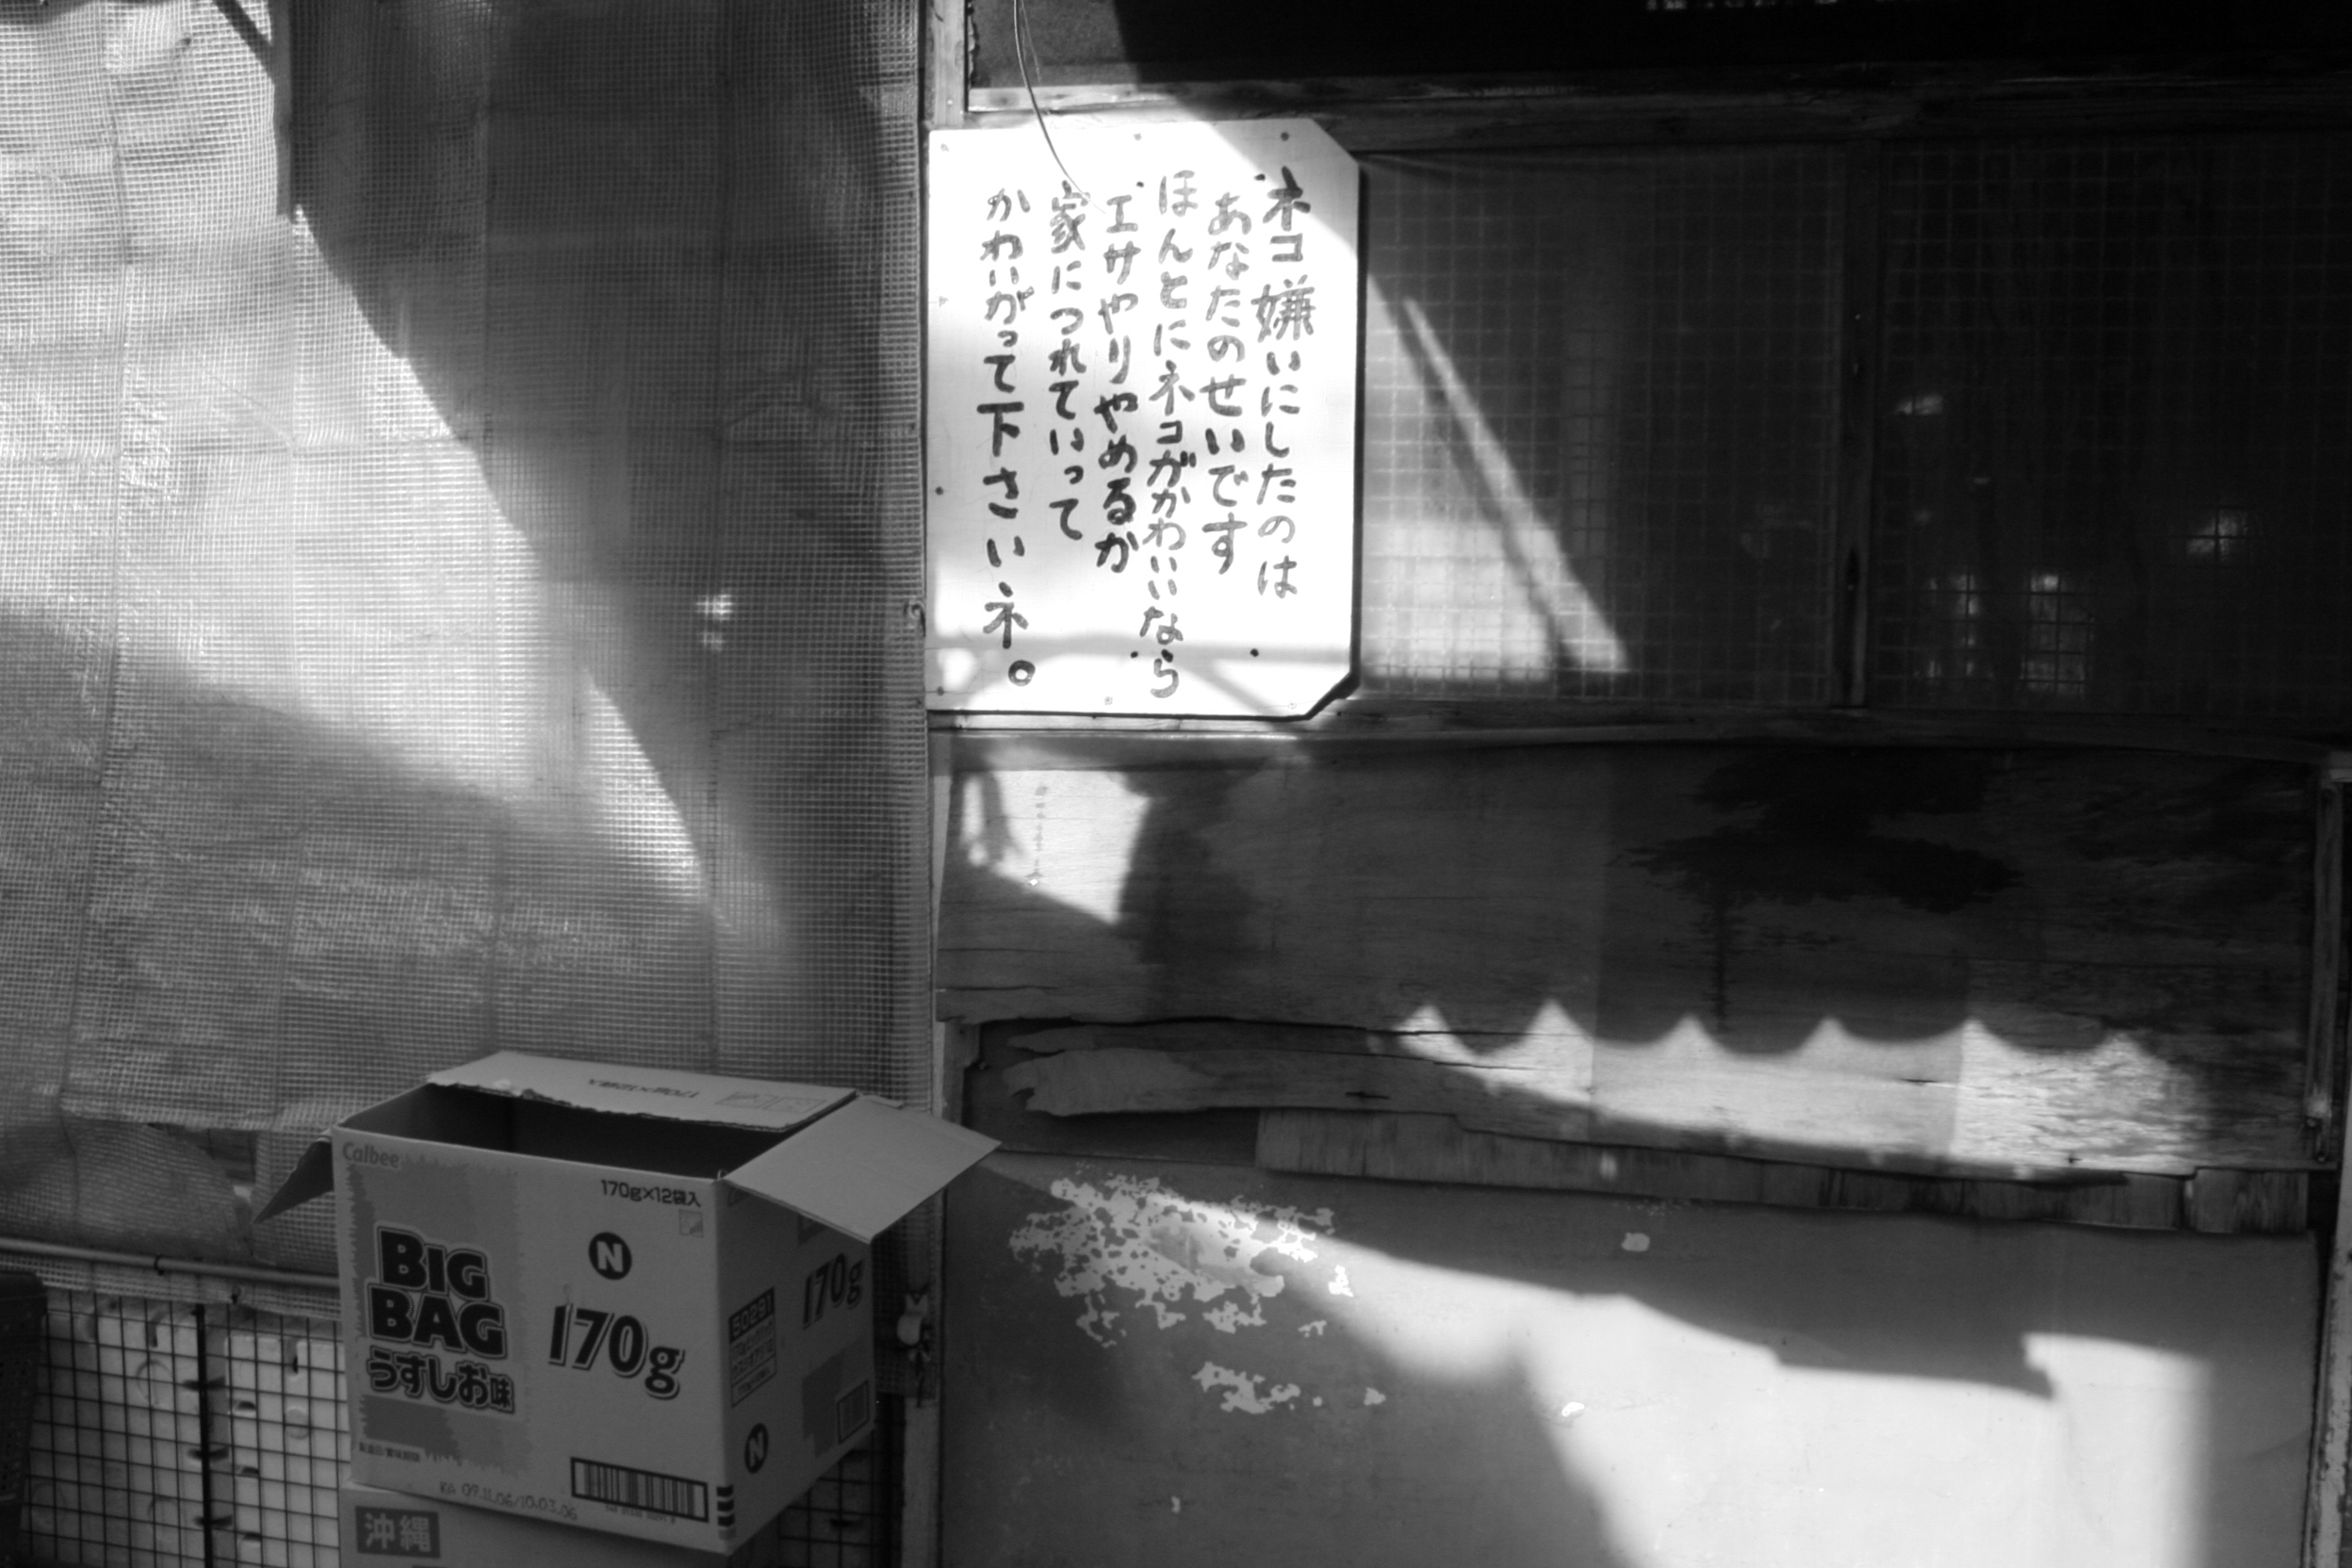 ネコ嫌いにしたのは
あなたのせいです
ほんとにネコがかわいいなら
エサやりやめるか
家につれていって
かわいがって下さいネ。
170g×12袋入
Calbee
170g×12袋入
N
BIG
BAG
うすしお味
170g
170g
50291
N
KA 09.11.06/10.03.06
沖縄